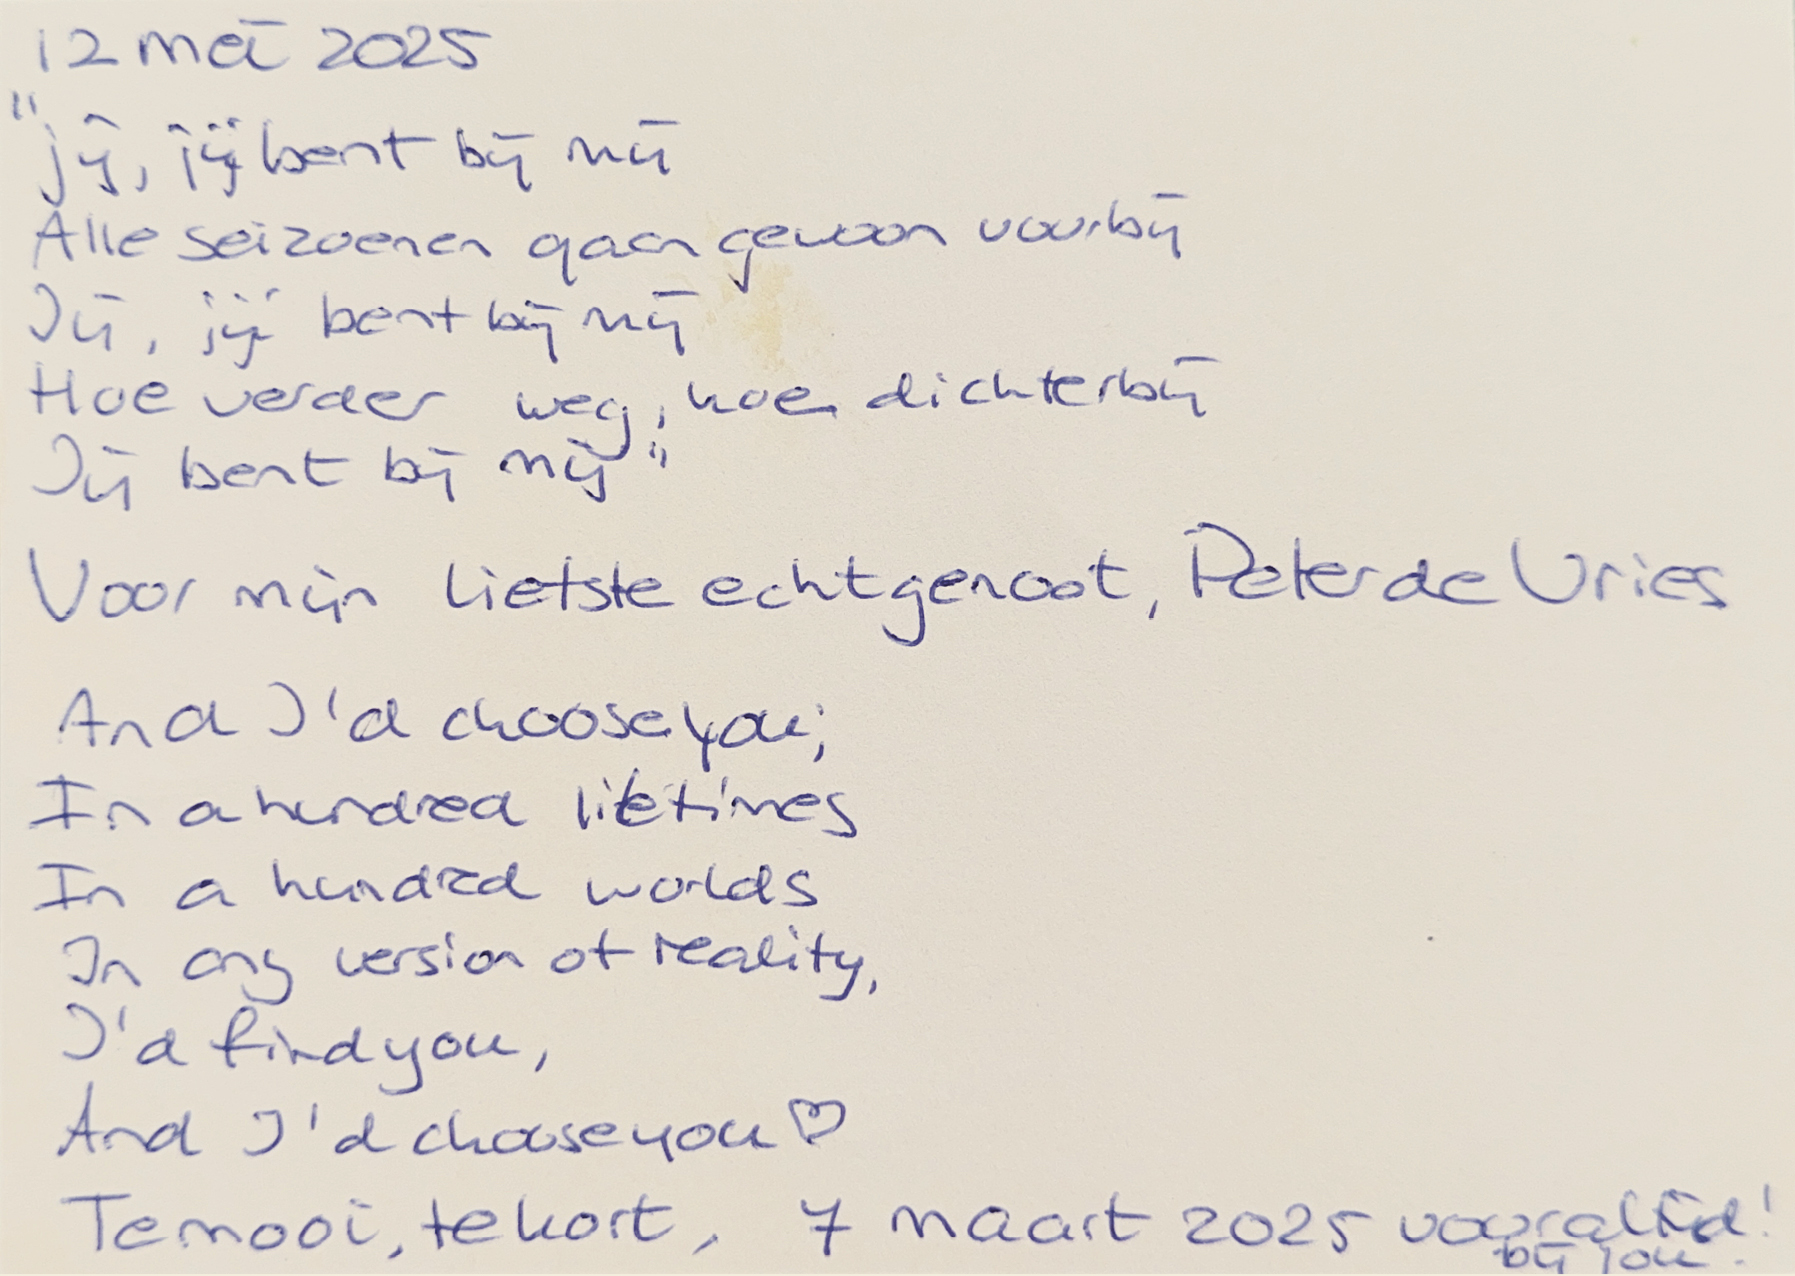 12 mei 2025
"jij, jij bent bij mij
Alle seizoenen gaan gewoon voorbij
Jij, jij bent bij mij
Hoe verder weg, hoe dichterbij
Jij bent bij mij"
Voor mijn liefste echtgenoot, Peter de Vries
And I'd choose you;
In a hundred lifetimes
In a hundred worlds
In any version of reality,
I'd find you,
And I'd choose you♡
Te mooi, te kort, 7 maart 2025 voor altijd!
bij jou.